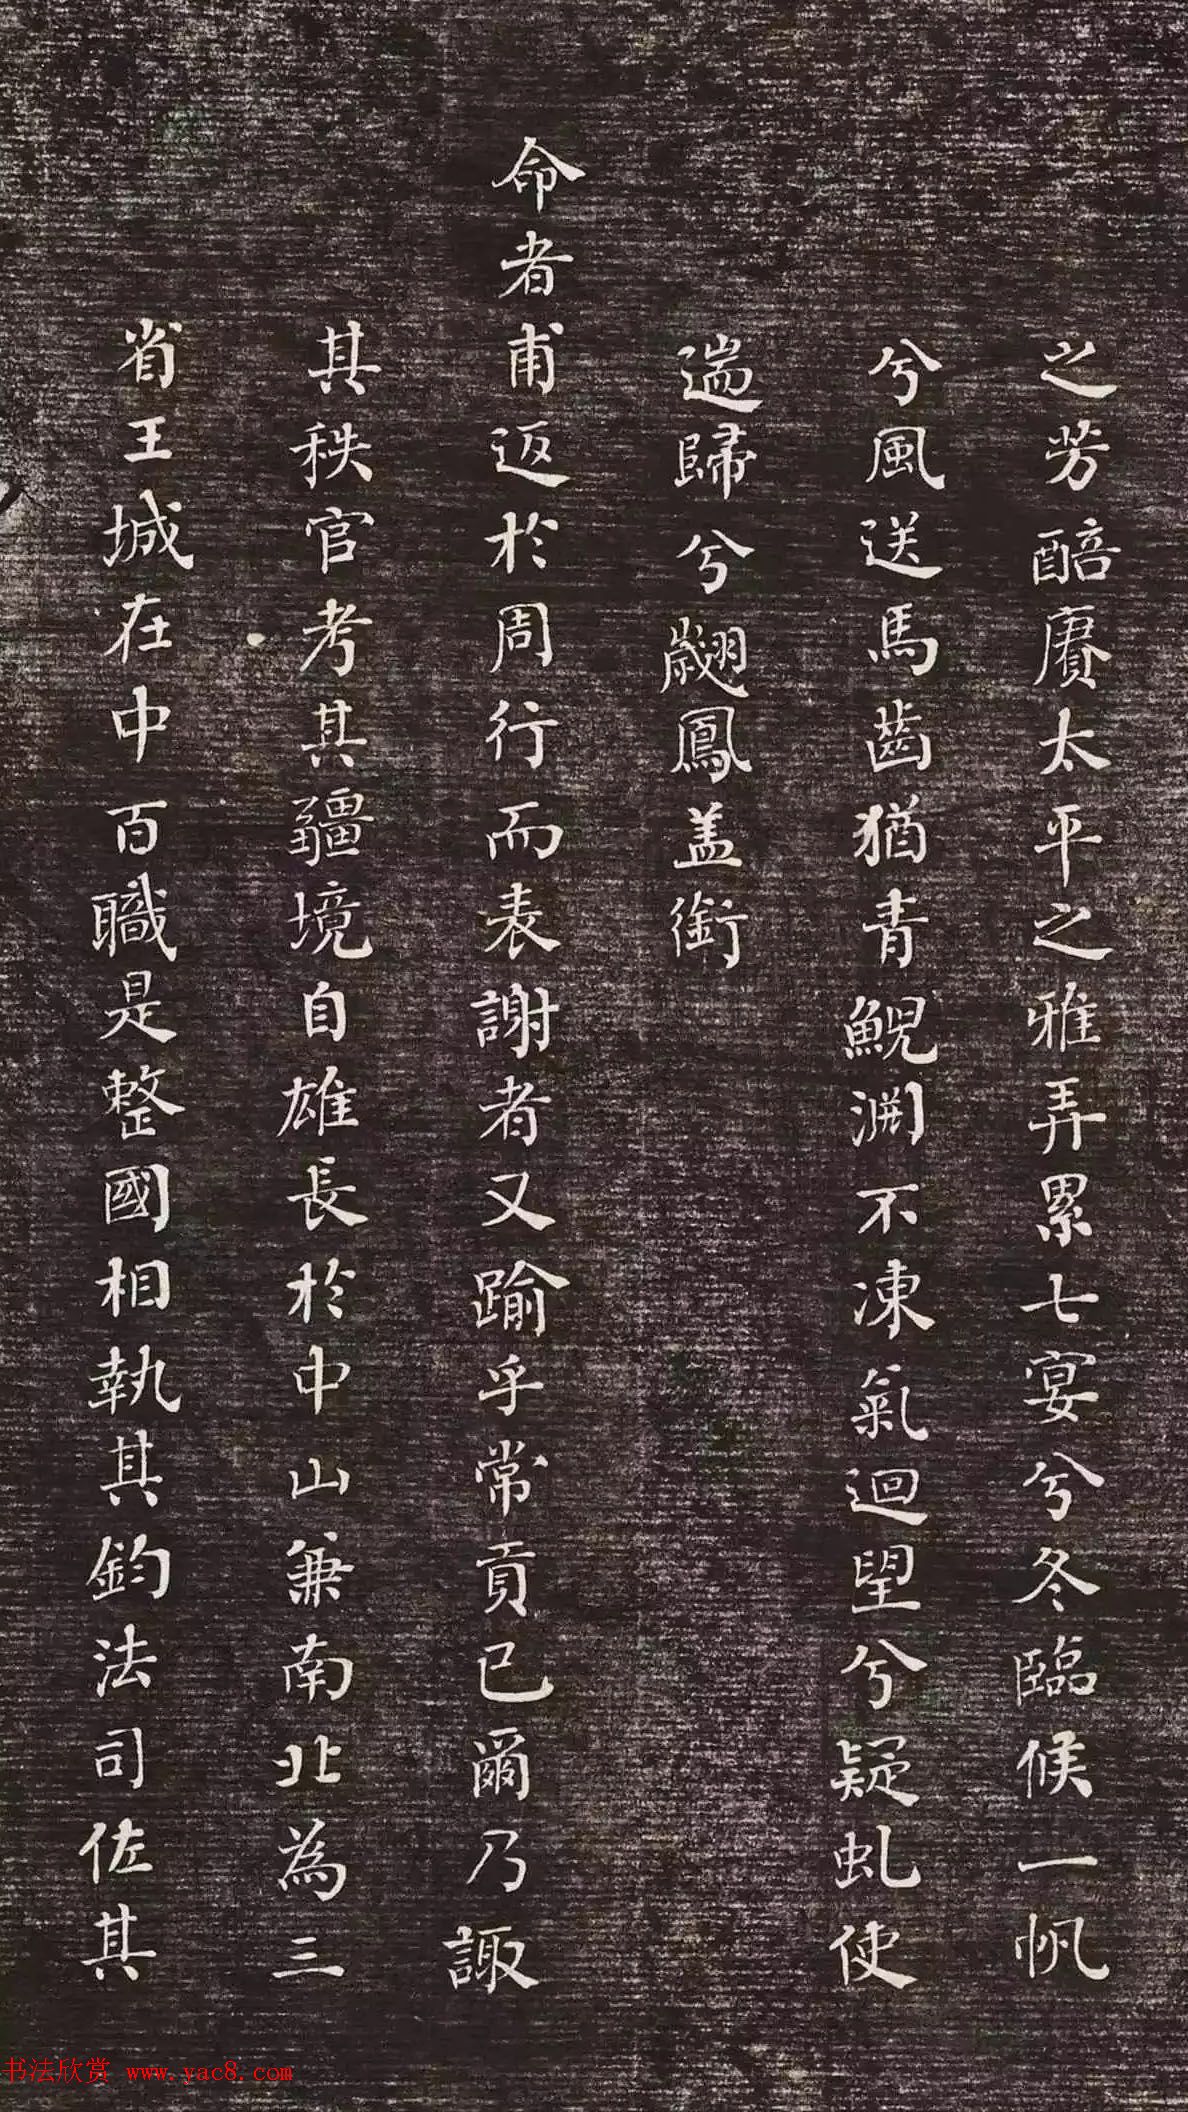 之芳醅賡太平之雅弄累七宴兮冬臨候一帆
兮風送馬齒猶青鯢渊不凍氣迴望兮疑虬使
遄歸兮翽鳳盖銜
命者甫返於周行而表謝者又踰乎常貢已爾乃諏
其秩官考其疆境自雄長於中山兼南北為三
省王城在中百職是整國相執其鈞法司佐其
书法欣赏 www.yac8.com